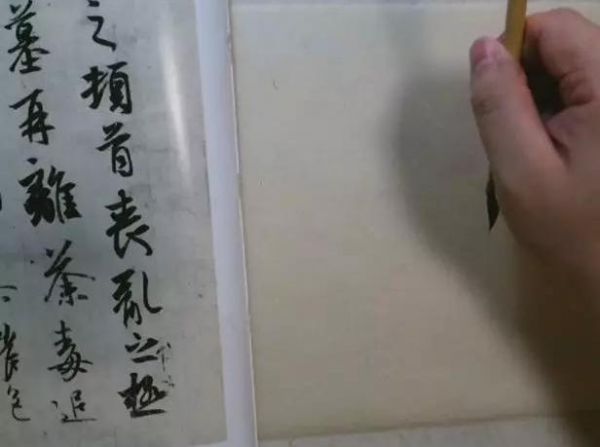 之頓首喪亂之極
墓再離荼毒追